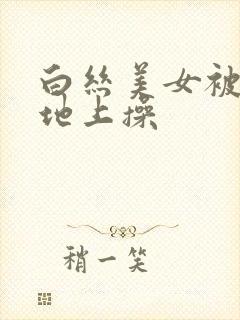 白丝美女被
地上操
稍一笑